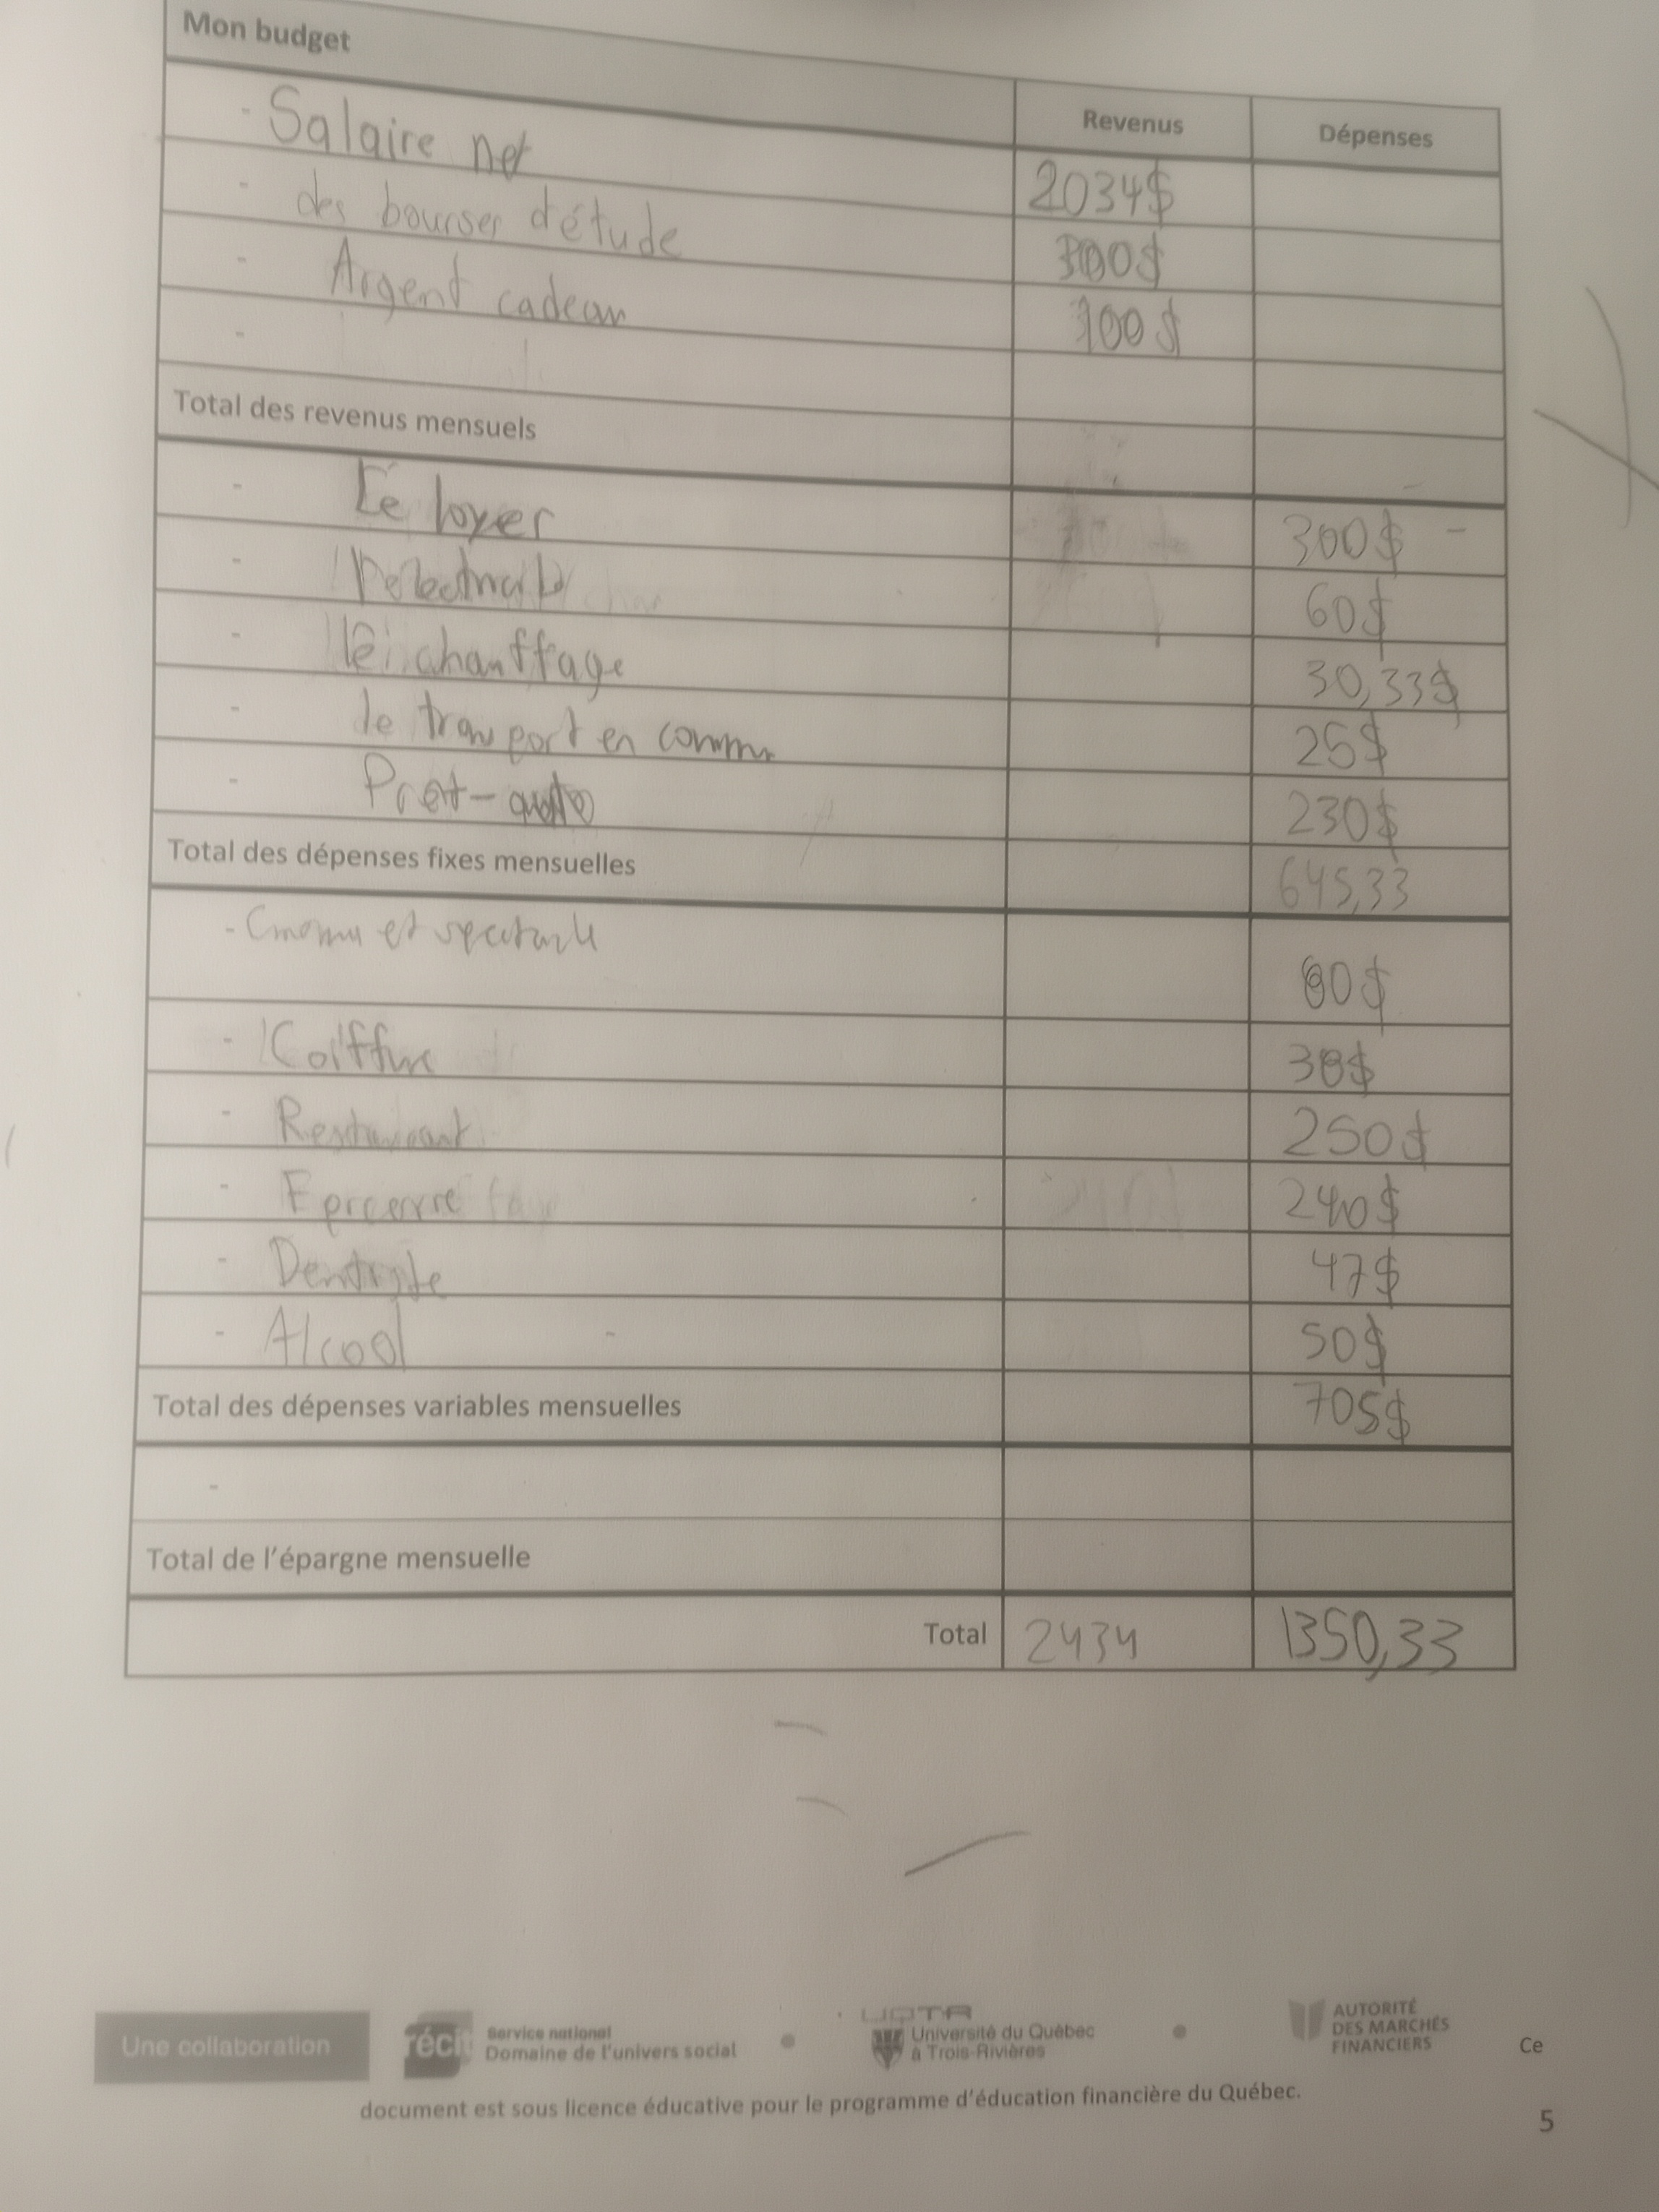 Mon budget
Revenus Dépenses
- Salaire net 2034$
- des bourses d'étude 300$
- Argent cadeau 100$
-
Total des revenus mensuels
- Le loyer 300$ -
- 60$
- le chauffage 30,33$
- de transport en commun 25$
- Prêt-auto 230$
Total des dépenses fixes mensuelles 645,33
- et spectacle 80$
- Coiffure 38$
- Restaurant 250$
- 240$
- Dentiste 47$
- Alcool 50$
Total des dépenses variables mensuelles 705$
-
Total de l'épargne mensuelle
Total 2434 1350,33
Une collaboration
récit Service national
Domaine de l'univers social
UQTR
Université du Québec
à Trois-Rivières
AUTORITÉ
DES MARCHÉS
FINANCIERS
Ce
document est sous licence éducative pour le programme d'éducation financière du Québec.
5